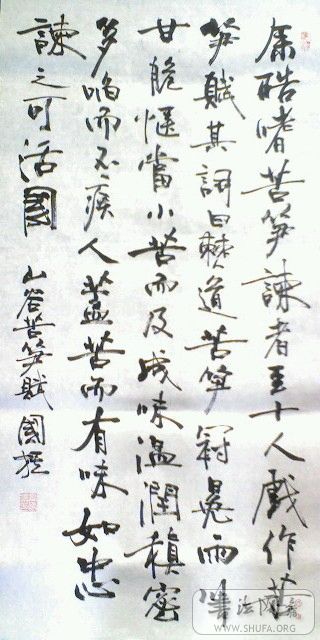 余酷嗜苦笋諫者至十人戲作苦
笋賦其詞曰僰道苦笋冠冕兩川
甘脆愜當小苦而及成味溫潤積密
多啗而不疾人蓋苦而有味如忠
諫之可活國 山谷苦笋賦 國
書法
WWW.SHUFA.ORG